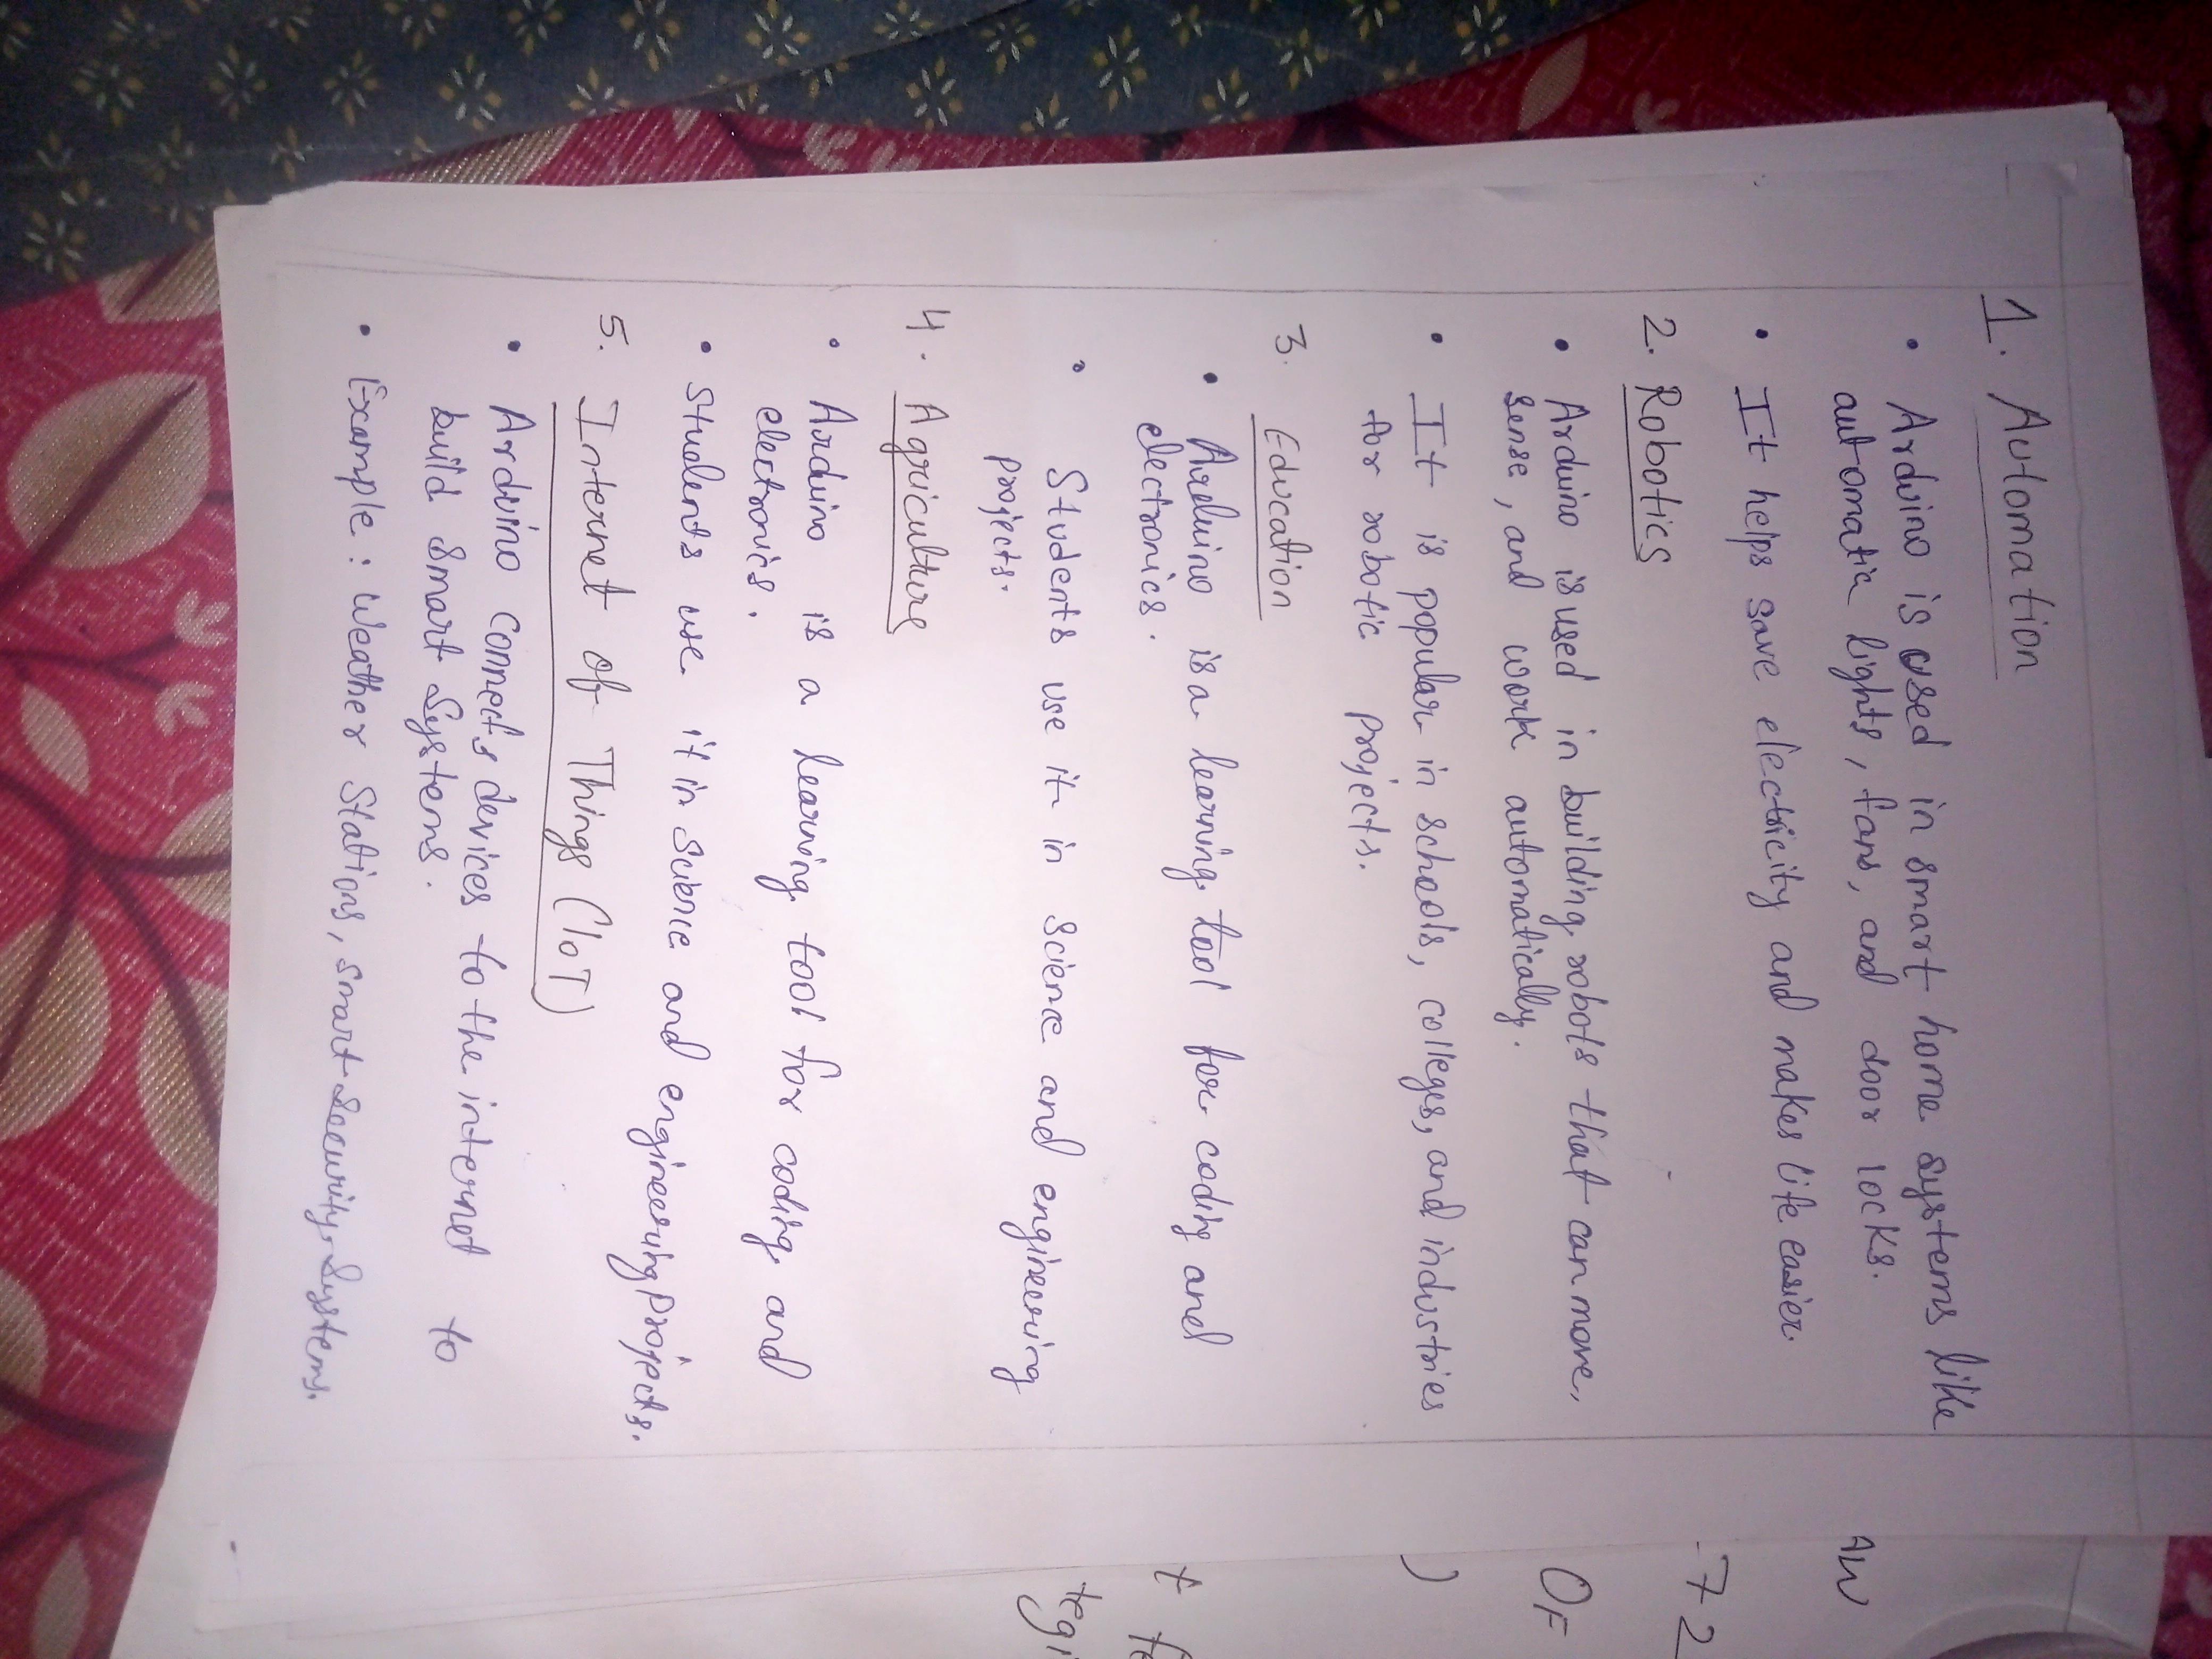 1. Automation
• Arduino is used in smart home systems like
automatic lights, fans, and door locks.
• It helps save electricity and makes life easier.
2. Robotics
• Arduino is used in building robots that can move,
sense, and work automatically.
• It is popular in schools, colleges, and industries
for robotic projects.
3. Education
• Arduino is a learning tool for coding and
electronics.
• Students use it in science and engineering
projects.
4. Agriculture
• Arduino is a learning tool for coding and
electronics.
• Students use it in science and engineering projects.
5. Internet of Things (IoT)
• Arduino connects devices to the internet to
build smart Systems.
• Example: Weather Stations, smart Security Systems.
AW
-72
OF
)
t
tegi